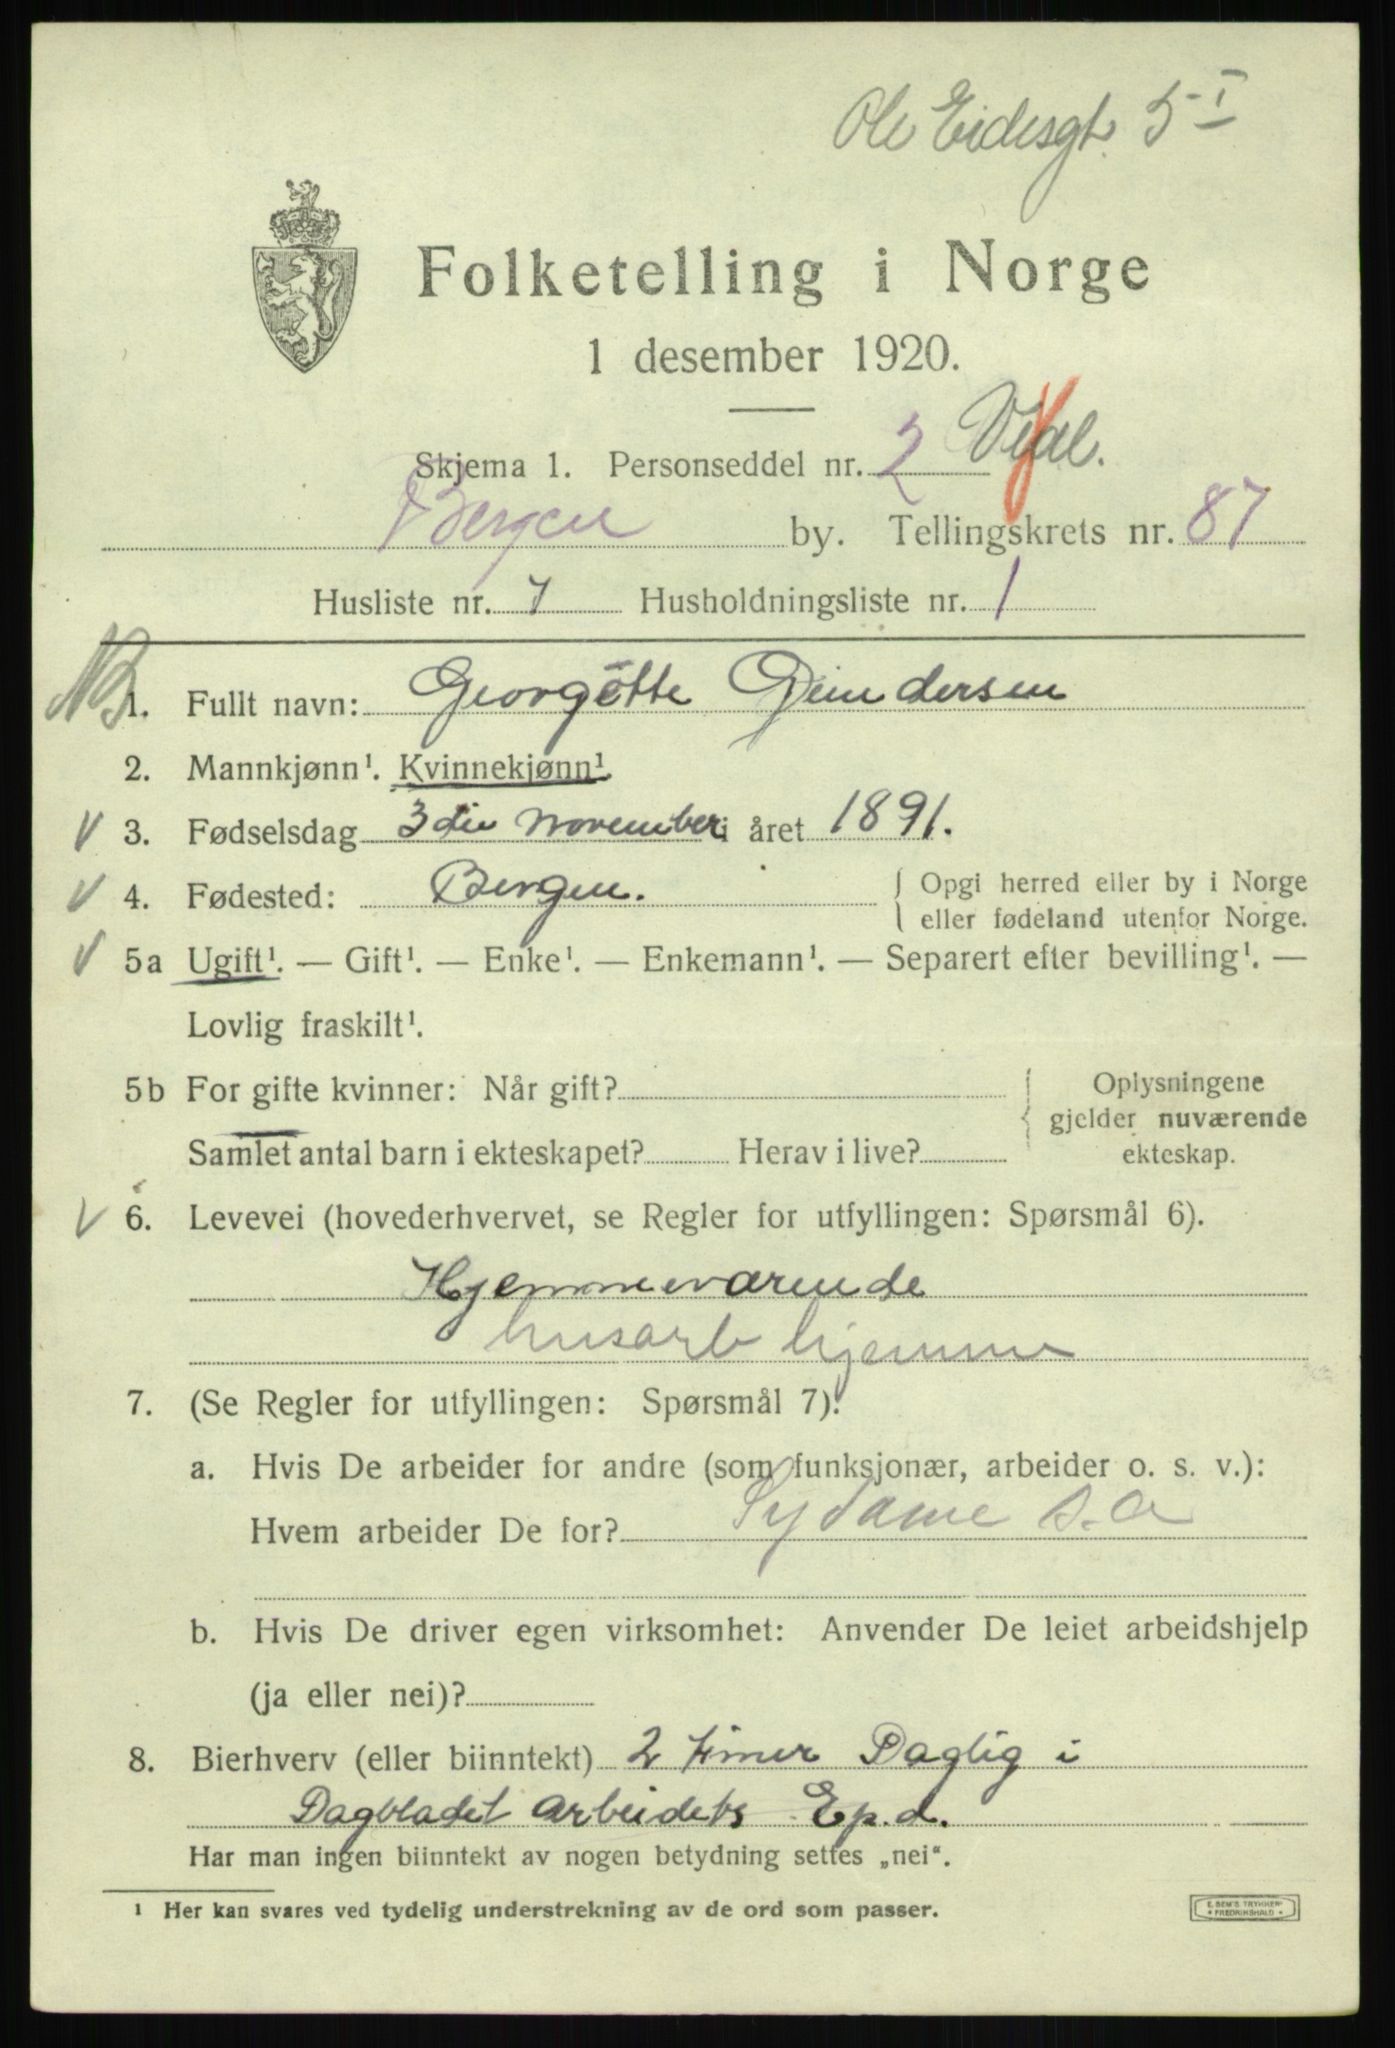 Ole Eidesgt. 5 I
Folketelling i Norge
1 desember 1920.
Skjema 1. Personseddel nr. 2
Bergen by. Tellingskrets nr. 87
Husliste nr. 7 Husholdningsliste nr. 1
NB
1. Fullt navn: Georgette Gundersen
2. Mannkjønn¹. Kvinnekjønn¹.
V 3. Fødselsdag 3die November i året 1891.
V 4. Fødested: Bergen. { Opgi herred eller by i Norge
eller fødeland utenfor Norge.
V 5a Ugift¹. — Gift¹. — Enke¹. — Enkemann¹. — Separert efter bevilling¹. —
Lovlig fraskilt¹.
5b For gifte kvinner: Når gift? { Oplysningene
gjelder nuværende
Samlet antal barn i ekteskapet? Herav i live? ekteskap.
V 6. Levevei (hovederhvervet, se Regler for utfyllingen: Spørsmål 6).
Hjemmeværende
husarb hjemme
7. (Se Regler for utfyllingen: Spørsmål 7).
a. Hvis De arbeider for andre (som funksjonær, arbeider o. s. v.):
Hvem arbeider De for? Sydame s.a
b. Hvis De driver egen virksomhet: Anvender De leiet arbeidshjelp
(ja eller nei)?
8. Bierhverv (eller biinntekt) 2 timer Daglig i
Dagbladet Arbeidets Exp.d.
Har man ingen biinntekt av nogen betydning settes „nei“.
¹ Her kan svares ved tydelig understrekning av de ord som passer.
E. SEM'S TRYKKERI
FREDRIKSHALD